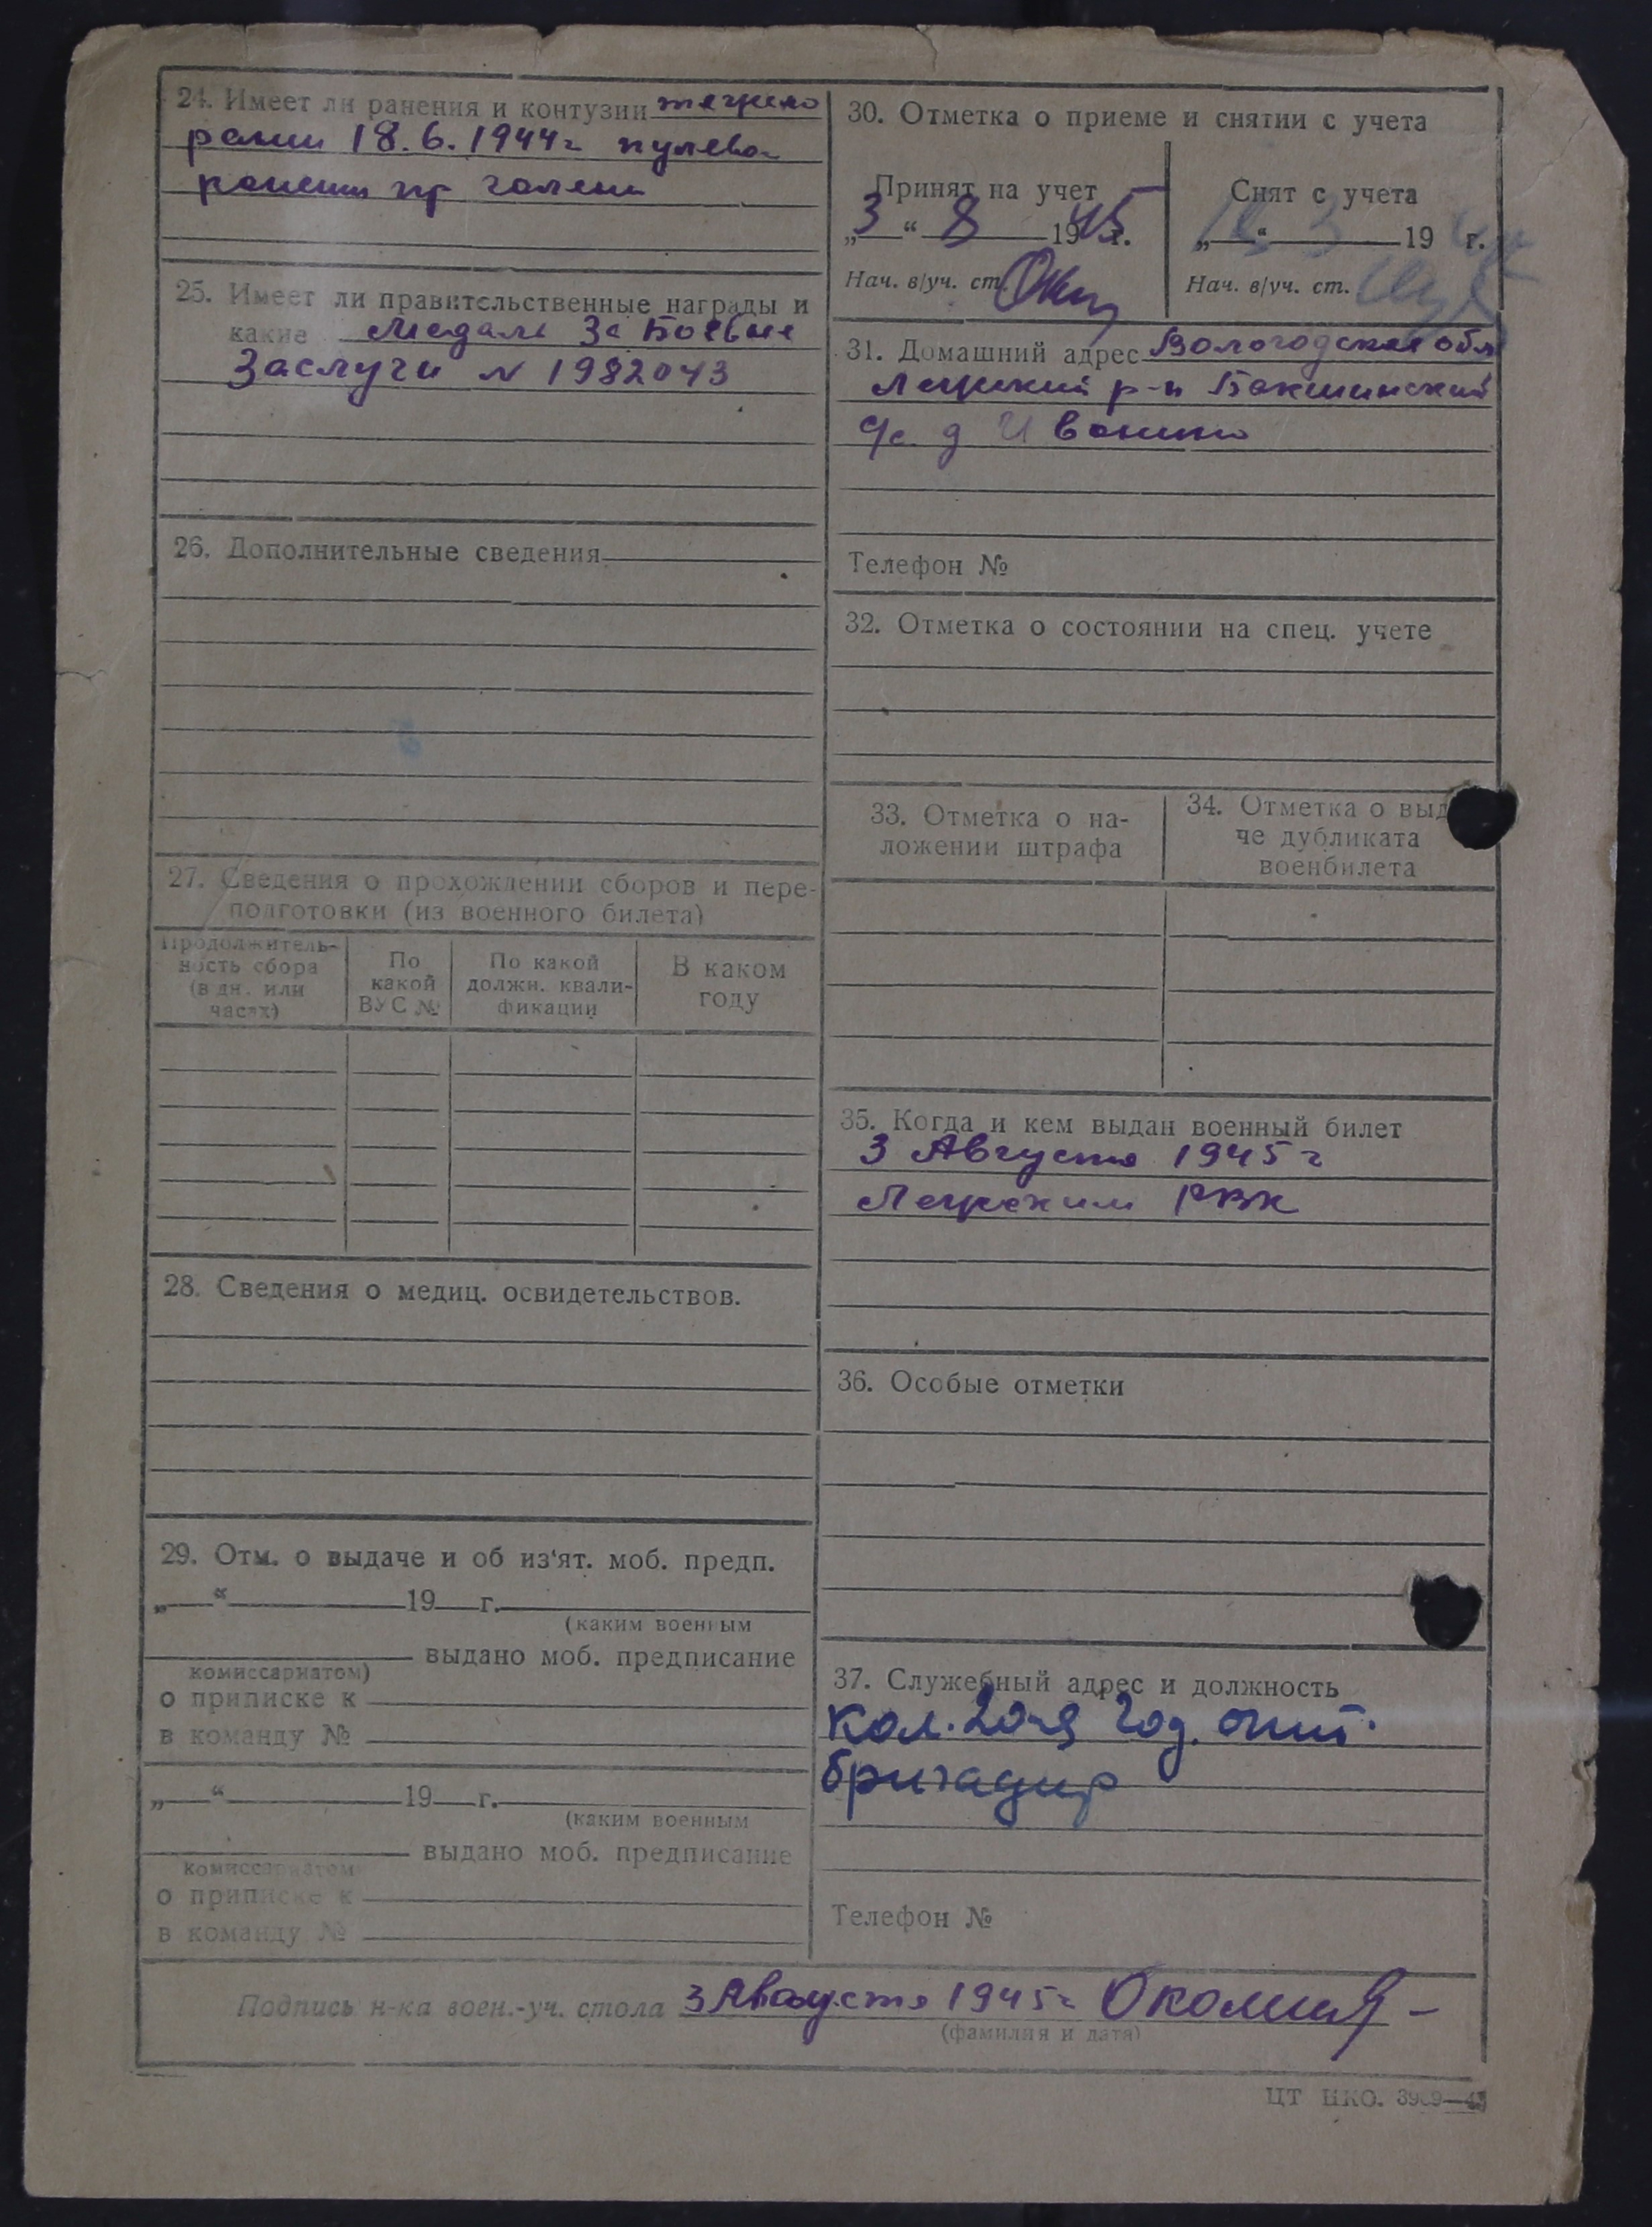 24. Имеет ли ранения и контузии тяжело
ранен 18.6.1944г пулевое
ранение пр голени
25. Имеет ли правительственные награды и
какие Медаль За Боевые
Заслуги N 1982043
26. Дополнительные сведения
27. Сведения о прохождении сборов и пере-
подготовки (из военного билета)
Продолжитель-
ность сбора
(в дн. или
часах)
По
какой
ВУС №
По какой
должн. квали-
фикации
В каком
году
28. Сведения о медиц. освидетельствов.
29. Отм. о выдаче и об из'ят. моб. предп.
„ “ 19 г.
(каким военным
выдано моб. предписание
комиссариатом)
о приписке к
в команду №
„ “ 19 г.
(каким военным
выдано моб. предписание
комиссариатом
о приписке к
в команду №
30. Отметка о приеме и снятии с учета
Принят на учет
„3“ 8 1945г.
Нач. в/уч. ст.
Снят с учета
„ “ 3 19 г.
Нач. в/уч. ст.
31. Домашний адрес Вологодская обл
р-н Бакшинский
с/с. д Иванино
Телефон №
32. Отметка о состоянии на спец. учете
33. Отметка о на-
ложении штрафа
34. Отметка о выд
че дубликата
военбилета
35. Когда и кем выдан военный билет
3 Августа 1945г
РВК
36. Особые отметки
37. Служебный адрес и должность
Кол. 20-я год. окт.
бригадир
Телефон №
Подпись н-ка воен.-уч. стола 3 Августа 1945г
(фамилия и дата)
ЦТ НКО.